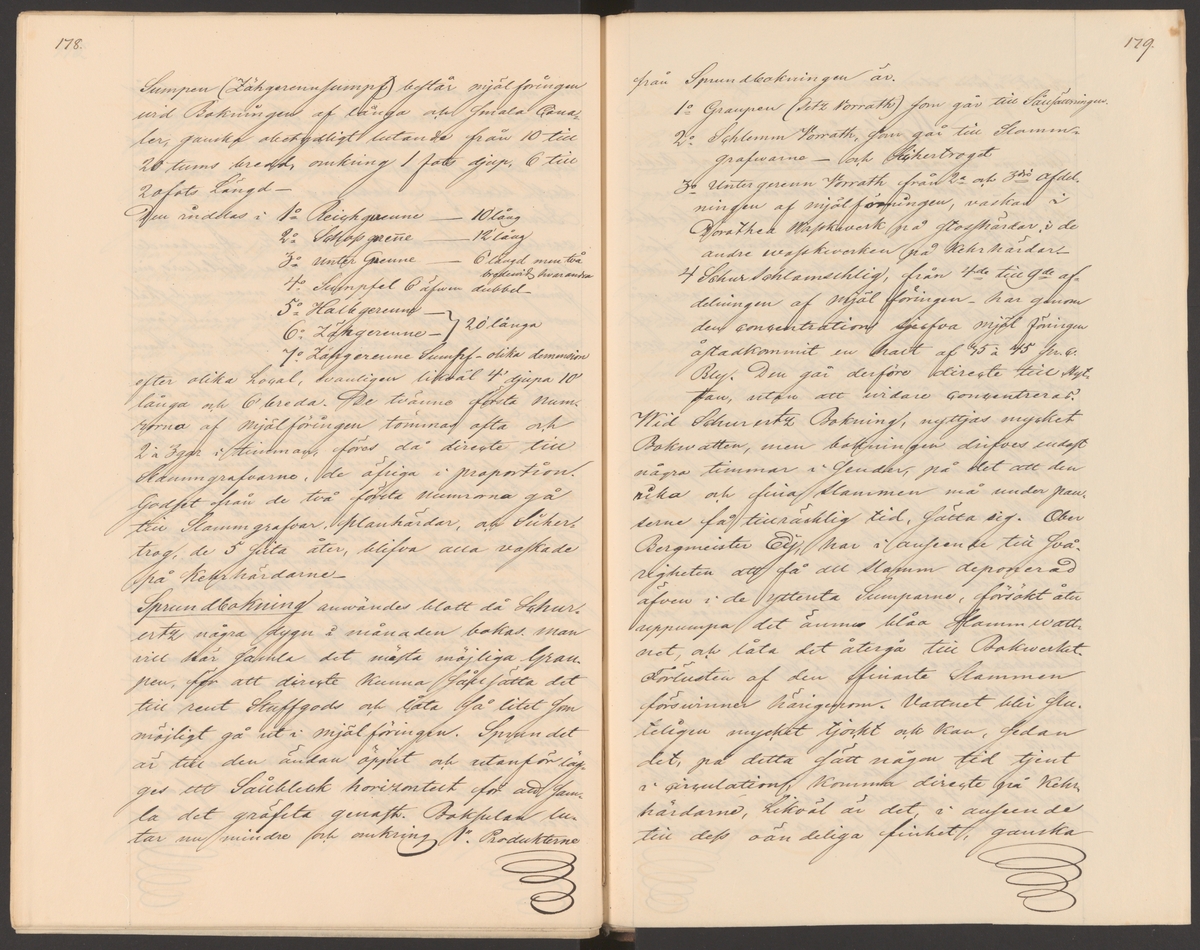 178.
Sumpen (Zähgerennsumpf) består mjölföringen
vid Bokningen af långa och smala Cana-
ler, ganska obetydligt lutande från 10 till
20 tums bredd, omkring 1 fots djup, 6 till
20 fots Längd –
Den indelas i 1o Reichgerenne — 10' lång
2o Schossgerenne — 12' lång
3o Unter Grenne — 6' längd men två
bredvid hvarandra
4o Sumpfel 6' äfven dubbel –
5o Halbgerenne –
6o Zähgerenne – } 20' långa
7o Zähgerenne Sumpf – olika demension
efter olika Local, vanligen likväl 4' djupa 10'
långa och 6' breda. De tvänne första num-
rorna af mjölföringen tömmas ofta och
2 à 3 ggr i timman, föras då directe till
Slammgrafvarne, de öfriga i proportion.
Godset från de två första numrorna gå
till Slammgrafvar, Planhärdar, och Sicher-
trog, de 5 sista åter, blifva alla vaskade
på Kehrhärdarne –
Sprundbokning användes blott då Schur-
ertz några dygn i månaden bokas. man
vill här samla det mesta möjliga Grau-
pen, för att directe kunna såll sätta det
till rent Stuffgods och låta så litet som
möjligt gå ut i mjölföringen. Sprundet
är till den ändan öppet och utanför läg-
ges ett Sållbleck horizontelt för att sam-
la det gröfsta genast. Boksulan lu-
tar nu mindre och omkring 1". Produkterne
179.
från Sprundbokningen är.
1o Graupen (Setz Vorrath) som går till Sållsättningen.
2o Schlemm Vorrath, som gå till Slamm-
grafvarne – och Sichertroget
3o Untergerenn Vorrath från 2a och 3die afdel-
ningen af mjölföringen, vaskas i
Dorothea Waskwerk på stosshärdar, i de
andra waskverken på Kehrhärdar –
4 Schur Schlamschlig, från 4de till 9de af-
delningen af mjöl föringen – har genom
den concentration sjelfva mjöl föringen
åstadkommit en halt af à 45
Bly. Den går derföre directe till Hyt-
tan, utan att vidare concentreras.
Wid Schurertz Bokning, nyttjas mycket
Bokvatten, men bokningen drifves endast
några timmar i sender, på det att den
rika och fina slammen må under pau-
serne få tillräcklig tid, sätta sig. Ober
Bergmeister har i anseende till svå-
righeten att få all slamm deponerad
äfven i de yttersta Sumparne, försökt åter
uppumpa det ännu blåa Slammvatt-
net, och låta det återgå till Bokverket.
Förlusten af den finaste Slammen
försvinner härigenom. Vattnet blir slu-
teligen mycket tjockt och kan, sedan
det, på detta sätt någon tid tjent
i circulation, komma directe på Kehr-
härdarne, Likväl är det, i anseende
till dess oändeliga finhet, ganska